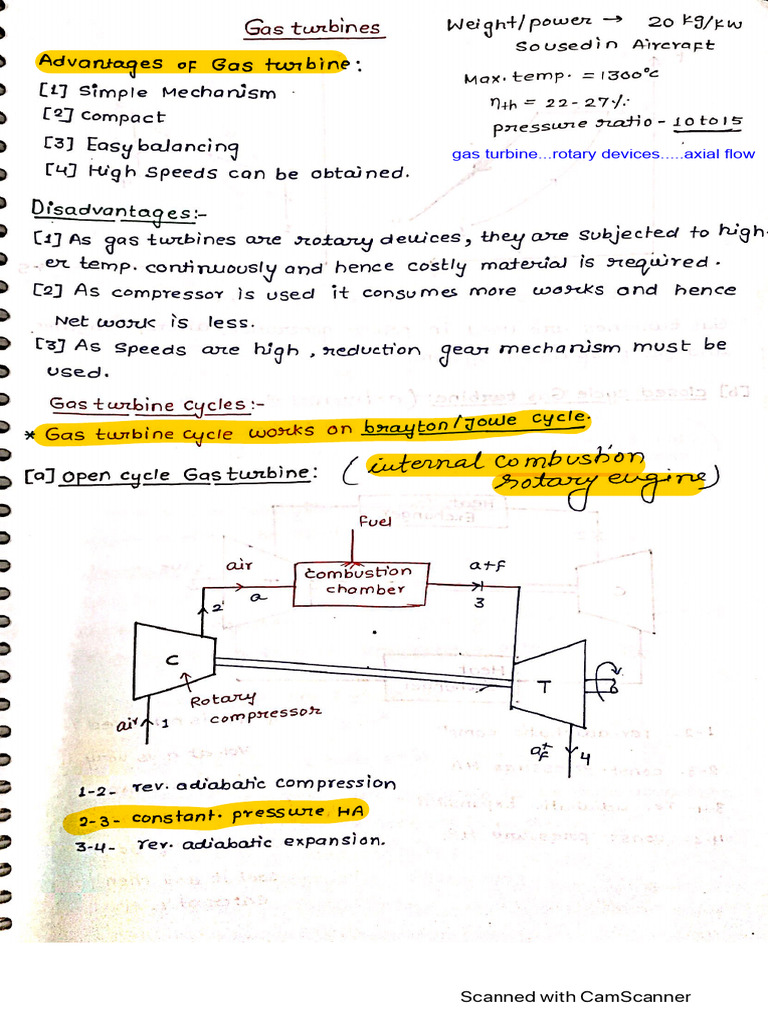 Gas turbines
Weight/power → 20 kg/kw
So used in Aircraft
Max. temp. = 1300°c
ηth = 22-27%.
pressure ratio - 10 to 15
gas turbine...rotary devices.....axial flow
Advantages of Gas turbine:
[1] Simple Mechanism
[2] Compact
[3] Easy balancing
[4] High Speeds can be obtained.
Disadvantages:-
[1] As gas turbines are rotary devices, they are subjected to high-
er temp. continuously and hence costly material is required.
[2] As compressor is used it consumes more works and hence
Net work is less.
[3] As speeds are high, reduction gear mechanism must be
used.
Gas turbine cycles:-
* Gas turbine cycle works on brayton/Joule cycle.
[a] open cycle Gas turbine: (internal combustion
rotary engine)
fuel
air
combustion
chamber
a+f
a
2'
3
C
T
Rotary
compressor
air 1
a+f
4
1-2- rev. adiabatic compression
2-3- constant. pressure HA
3-4- rev. adiabatic expansion.
Scanned with CamScanner